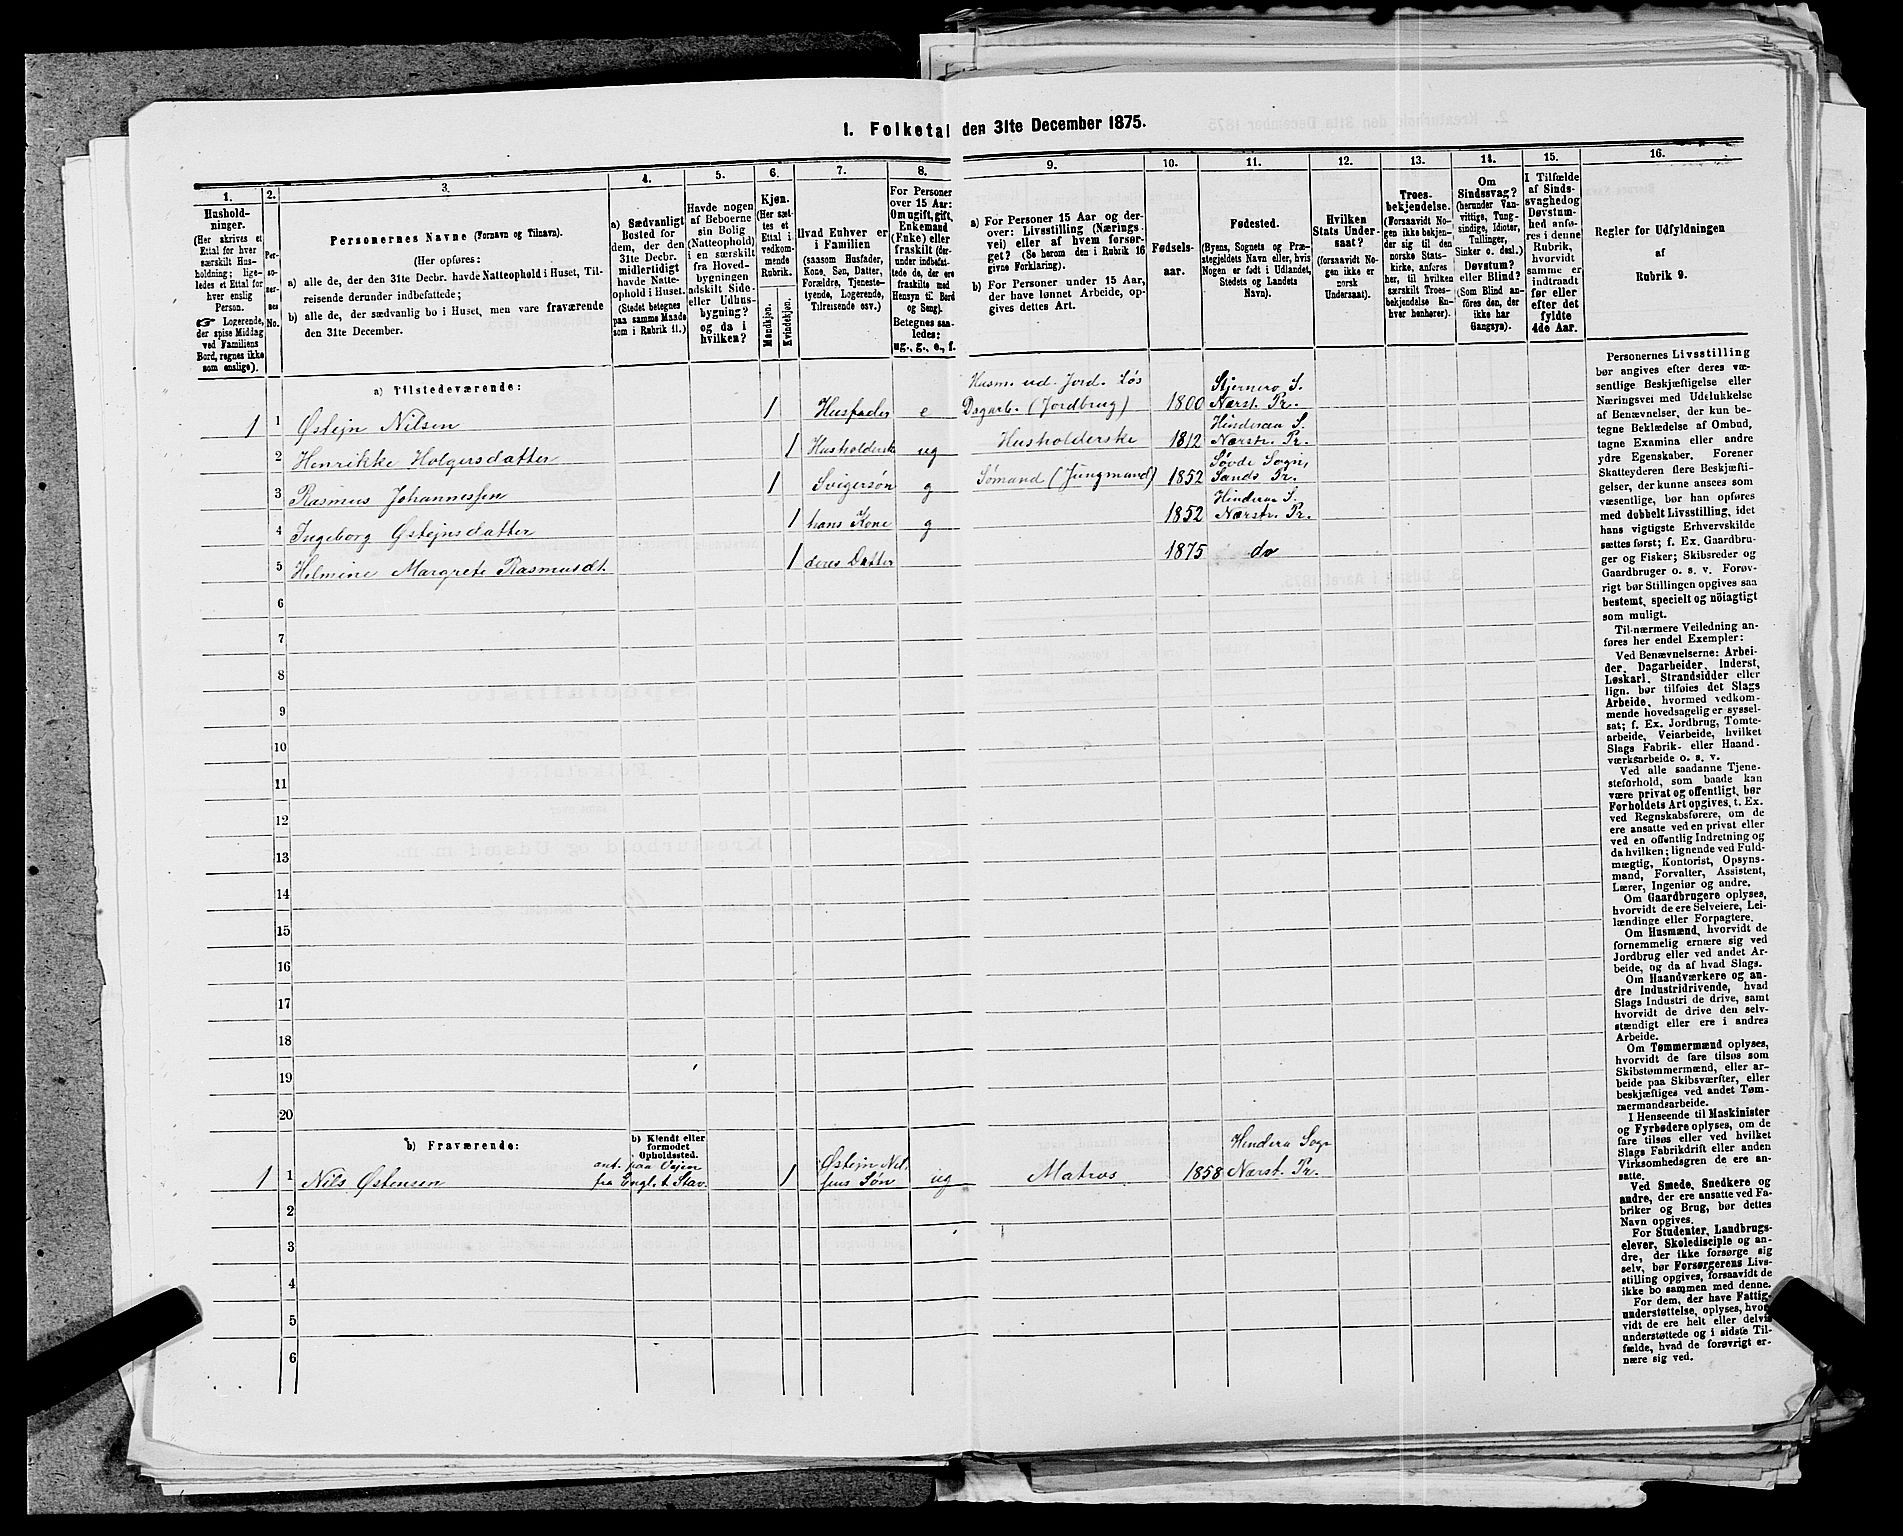 I. Folketal den 31te December 1875.
1. 2. 3. 4. 5. 6. 7. 8. 9. 10. 11. 12. 13. 14. 15. 16.
Hushold-
ninger.
(Her skrives et
Ettal for hver
særskilt Hus-
holdning; lige-
ledes et Ettal for
hver enslig
Person.
☞ Logerende,
der spise Middag
ved Familiens
Bord, regnes ikke
som enslige).
Per-
so-
ner-
nes
No.
Personernes Navne (Fornavn og Tilnavn).
(Her opføres:
a) alle de, der den 31te Decbr. havde Natteophold i Huset, Til-
reisende derunder indbefattede;
b) alle de, der sædvanlig bo i Huset, men vare fraværende
den 31te December.
a) Sædvanligt
Bosted for
dem, der den
31te Decbr.
midlertidigt
havde Natte-
ophold i Huset.
(Stedet betegnes
paa samme Maade
som i Rubrik 11.)
Havde nogen
af Beboerne
sin Bolig
(Natteophold)
i en særskilt
fra Hoved-
bygningen
adskilt Side-
eller Udhus-
bygning?
og da i
hvilken?
Kjøn.
(Her sæt-
tes et
Ettal i
vedkom-
mende
Rubrik.
Mandkjøn.
Kvindekjøn.
Hvad Enhver er
i Familien
(saasom Husfader,
Kone, Søn, Datter,
Forældre, Tjeneste-
tyende, Logerende,
Tilreisende osv.)
For Personer
over 15 Aar:
Om ugift, gift,
Enkemand
(Enke) eller
fraskilt (der-
under indbefat-
tede de, der ere
fraskilte med
Hensyn til Bord
og Seng).
Betegnes saa-
ledes:
ug., g., e., f.
a) For Personer 15 Aar og der-
over: Livsstilling (Nærings-
vei) eller af hvem forsør-
get? (Se herom den i Rubrik 16
givne Forklaring).
b) For Personer under 15 Aar,
der have lønnet Arbeide, op-
gives dettes Art.
Fødsels-
aar.
Fødested.
(Byens, Sognets og Præ-
stegjeldets Navn, eller, hvis
Nogen er født i Udlandet,
Stedets og Landets
Navn).
Hvilken
Stats Under-
saat?
(forsaavidt No-
gen ikke er
norsk
Undersaat).
Troes-
bekjendelse.
(Forsaavidt No-
gen ikke bekjen-
der sig til den
norske Stats-
kirke, anføres
her, til hvilken
særskilt Troes-
bekjendelse En-
hver henhører).
Om
Sindssvag?
(herunder Van-
vittige, Tung-
sindige, Idioter,
Tullinger,
Sinker o. desl.)
Døvstum?
eller Blind?
(Som Blind an-
føres den, der
ikke har
Gangsyn).
I Tilfælde
af Sinds-
svaghed og
Døvstum-
hed anfø-
res i denne
Rubrik,
hvorvidt
samme er
indtraadt
før eller
efter det
fyldte
4de Aar.
Regler for Udfyldningen
af
Rubrik 9.
a) Tilstedeværende:
1 1 Østejn Nilsen 1 Husfader e Husm. ud. Jord. Løs Dagarb. (Jordbrug) 1800 Stjernerø S. Nærst. Pr.
2 Henrikke Holgersdatter 1 Husholderske ug Husholderske 1812 Hinderaa S. Nærstr. Pr.
3 Rasmus Johannessen 1 Svigersøn g Sømand (Jungmand) 1852 Søvde Sogn, Sands Pr.
4 Ingeborg Østejnsdatter 1 hans Kone g 1852 Hinderaa S. Nærstr. Pr.
5 Helmine Margrete Rasmusdt. 1 deres Datter 1875 do
6
7
8
9
10
11
12
13
14
15
16
17
18
19
20
b) Fraværende:
b) Kjendt eller
formodet
Opholdssted.
1 1 Nils Østensen ant. paa Vejen fra Engl. t. Stav. 1 Østejn Nilsens Søn ug Matros 1858 Hindera Sogn Nærst. Pr.
2
3
4
5
6
Personernes Livsstilling
bør angives efter deres væ-
sentlige Beskjæftigelse eller
Næringsvei med Udelukkelse
af Benævnelser, der kun be-
tegne Beklædelse af Ombud,
tagne Examina eller andre
ydre Egenskaber. Forener
Skatteyderen flere Beskjæfti-
gelser, der kunne ansees som
væsentlige, bør han opføres
med dobbelt Livsstilling, idet
hans vigtigste Erhvervskilde
sættes først; f. Ex. Gaardbru-
ger og Fisker; Skibsreder og
Gaardbruger o. s. v. Forøv-
rigt bør Stillingen opgives saa
bestemt, specielt og nöiagtigt
som muligt.
Til nærmere Veiledning an-
føres her endel Exempler:
Ved Benævnelserne: Arbei-
der, Dagarbeider, Inderst,
Løskarl, Strandsidder eller
lign. bør tilføies det Slags
Arbeide, hvormed vedkom-
mende hovedsagelig er syssel-
sat; f. Ex. Jordbrug, Tomte-
arbeide, Veiarbeide, hvilket
Slags Fabrik- eller Haand-
værksarbeide o. s. v.
Ved alle saadanne Tjene-
steforhold, som baade kan
være privat og offentligt, bør
Forholdets Art opgives, t. Ex.
ved Regnskabsførere, om de
ere ansatte ved en privat eller
ved en offentlig Indretning og
da hvilken; lignende ved Fuld-
mægtig, Kontorist, Opsyns-
mand, Forvalter, Assistent,
Lærer, Ingeniør og andre.
Om Gaardbrugere oplyses,
hvorvidt de ere Selveiere, Lei-
lændinge eller Forpagtere.
Om Husmænd, hvorvidt de
fornemmelig ernære sig ved
Jordbrug eller ved andet Ar-
beide, og da af hvad Slags.
Om Haandværkere og an-
dre Industridrivende, hvad
Slags Industri de drive, samt
hvorvidt de drive den selv-
stændigt eller ere i andres
Arbeide.
Om Tømmermænd oplyses,
hvorvidt de fare tilsøs som
Skibstømmermænd, eller ar-
beide paa Skibsværfter, eller
beskjæftiges ved andet Tøm-
mermandsarbeide.
I Henseende til Maskinister
og Fyrbødere oplyses, om de
fare tilsøs eller ved hvilket
Slags Fabrikdrift eller anden
Virksomhedsgren de ere an-
satte.
Ved Smede, Snedkere og
andre, der ere ansatte ved Fa-
briker og Brug, bør dettes
Navn opgives.
For Studenter, Landbrugs-
elever, Skoledisciple og an-
dre, der ikke forsørge sig
selv, bør Forsørgerens Livs-
stilling opgives, forsaavidt de
ikke bo sammen med denne.
For dem, der have Fattig-
understøttelse, oplyses, hvor-
vidt de ere helt eller delvis
understøttede og i sidste Til-
fælde, hvad de forøvrigt er-
nære sig ved.